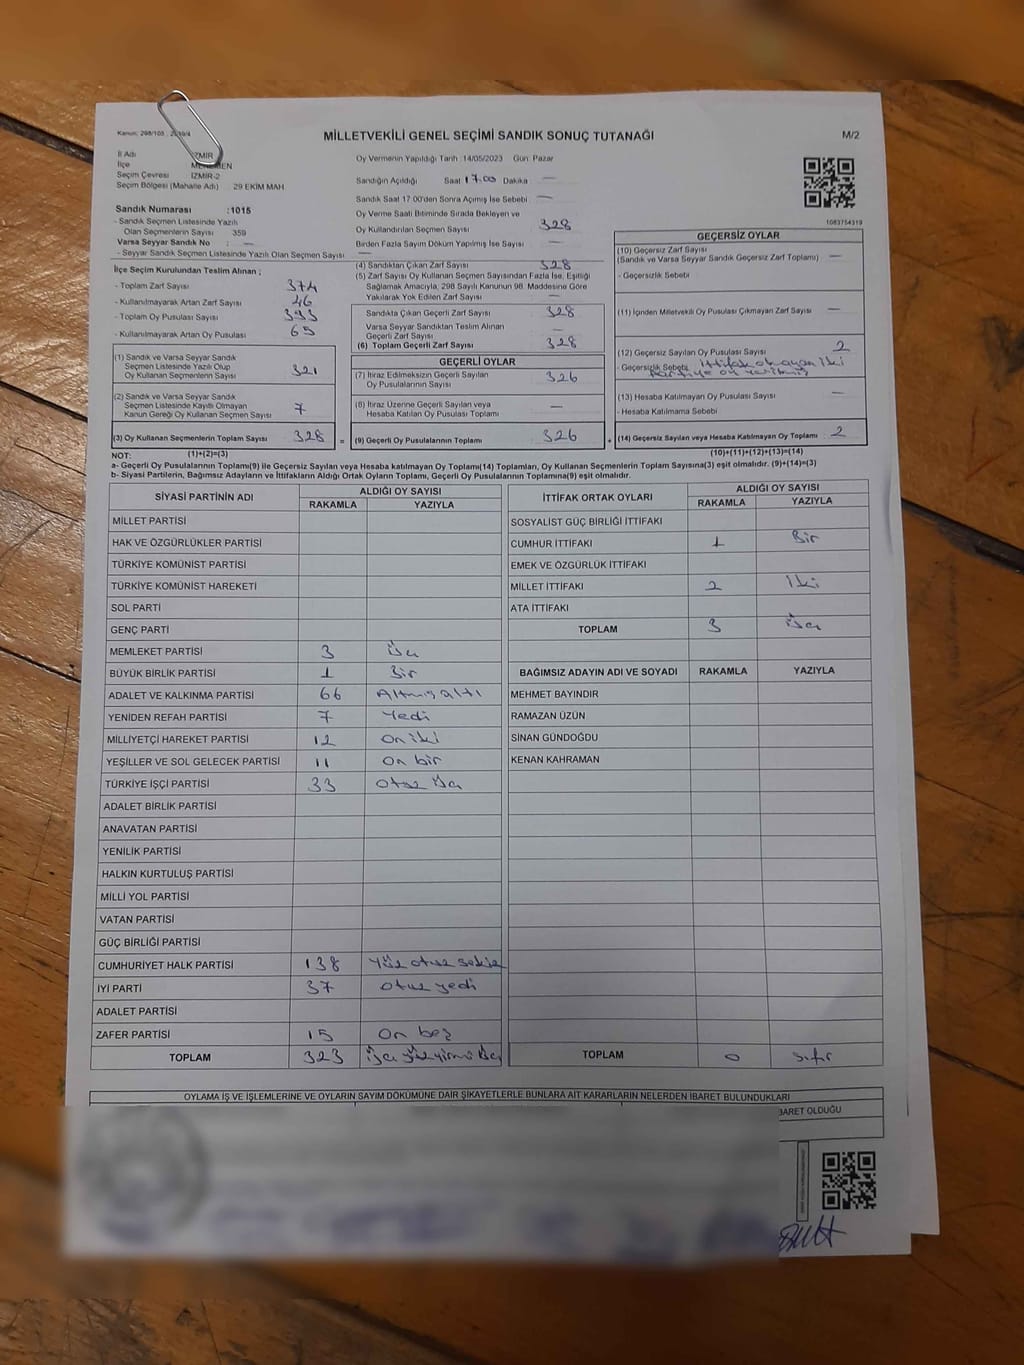 Kanun: 298/105
MİLLETVEKİLİ GENEL SEÇİMİ SANDIK SONUÇ TUTANAĞI
M/2
İl Adı İZMİR
İlçe MENEMEN
Seçim Çevresi İZMİR-2
Seçim Bölgesi (Mahalle Adı) 29 EKİM MAH
Sandık Numarası :1015
- Sandık Seçmen Listesinde Yazılı
Olan Seçmenlerin Sayısı 359
Varsa Seyyar Sandık No : —
- Seyyar Sandık Seçmen Listesinde Yazılı Olan Seçmen Sayısı —
Oy Vermenin Yapıldığı Tarih :14/05/2023 Gün: Pazar
Sandığın Açıldığı Saat 17.00 Dakika —
Sandık Saat 17:00'den Sonra Açılmış İse Sebebi —
Oy Verme Saati Bitiminde Sırada Bekleyen ve
Oy Kullandırılan Seçmen Sayısı 328
Birden Fazla Sayım Döküm Yapılmış İse Sayısı —
1083754319
İlçe Seçim Kurulundan Teslim Alınan ;
- Toplam Zarf Sayısı 374
- Kullanılmayarak Artan Zarf Sayısı 46
- Toplam Oy Pusulası Sayısı 393
- Kullanılmayarak Artan Oy Pusulası 65
(1) Sandık ve Varsa Seyyar Sandık
Seçmen Listesinde Yazılı Olup
Oy Kullanan Seçmenlerin Sayısı 321
(2) Sandık ve Varsa Seyyar Sandık
Seçmen Listesinde Kayıtlı Olmayan
Kanun Gereği Oy Kullanan Seçmen Sayısı 7
(3) Oy Kullanan Seçmenlerin Toplam Sayısı 328 =
(4) Sandıktan Çıkan Zarf Sayısı 328
(5) Zarf Sayısı Oy Kullanan Seçmen Sayısından Fazla İse, Eşitliği
Sağlamak Amacıyla, 298 Sayılı Kanunun 98. Maddesine Göre
Yakılarak Yok Edilen Zarf Sayısı —
Sandıkta Çıkan Geçerli Zarf Sayısı 328
Varsa Seyyar Sandıktan Teslim Alınan
Geçerli Zarf Sayısı —
(6) Toplam Geçerli Zarf Sayısı 328
GEÇERLİ OYLAR
(7) İtiraz Edilmeksizin Geçerli Sayılan
Oy Pusulalarının Sayısı 326
(8) İtiraz Üzerine Geçerli Sayılan veya
Hesaba Katılan Oy Pusulası Toplamı —
(9) Geçerli Oy Pusulalarının Toplamı 326 +
GEÇERSİZ OYLAR
(10) Geçersiz Zarf Sayısı
(Sandık ve Varsa Seyyar Sandık Geçersiz Zarf Toplamı) —
- Geçersizlik Sebebi
(11) İçinden Milletvekili Oy Pusulası Çıkmayan Zarf Sayısı —
(12) Geçersiz Sayılan Oy Pusulası Sayısı 2
- Geçersizlik Sebebi İttifak olmayan iki
partiye oy verilmiş
(13) Hesaba Katılmayan Oy Pusulası Sayısı —
- Hesaba Katılmama Sebebi
(14) Geçersiz Sayılan veya Hesaba Katılmayan Oy Toplamı 2
NOT: (1)+(2)=(3) (10)+(11)+(12)+(13)=(14)
a- Geçerli Oy Pusulalarının Toplamı(9) ile Geçersiz Sayılan veya Hesaba katılmayan Oy Toplamı(14) Toplamları, Oy Kullanan Seçmenlerin Toplam Sayısına(3) eşit olmalıdır. (9)+(14)=(3)
b- Siyasi Partilerin, Bağımsız Adayların ve İttifakların Aldığı Ortak Oyların Toplamı, Geçerli Oy Pusulalarının Toplamına(9) eşit olmalıdır.
SİYASİ PARTİNİN ADI ALDIĞI OY SAYISI
RAKAMLA YAZIYLA
MİLLET PARTİSİ
HAK VE ÖZGÜRLÜKLER PARTİSİ
TÜRKİYE KOMÜNİST PARTİSİ
TÜRKİYE KOMÜNİST HAREKETİ
SOL PARTİ
GENÇ PARTİ
MEMLEKET PARTİSİ 3 üç
BÜYÜK BİRLİK PARTİSİ 1 Bir
ADALET VE KALKINMA PARTİSİ 66 Altmış altı
YENİDEN REFAH PARTİSİ 7 Yedi
MİLLİYETÇİ HAREKET PARTİSİ 12 on iki
YEŞİLLER VE SOL GELECEK PARTİSİ 11 on bir
TÜRKİYE İŞÇİ PARTİSİ 33 otuz üç
ADALET BİRLİK PARTİSİ
ANAVATAN PARTİSİ
YENİLİK PARTİSİ
HALKIN KURTULUŞ PARTİSİ
MİLLİ YOL PARTİSİ
VATAN PARTİSİ
GÜÇ BİRLİĞİ PARTİSİ
CUMHURİYET HALK PARTİSİ 138 yüz otuz sekiz
İYİ PARTİ 37 otuz yedi
ADALET PARTİSİ
ZAFER PARTİSİ 15 on beş
TOPLAM 323 üç yüz yirmi üç
İTTİFAK ORTAK OYLARI ALDIĞI OY SAYISI
RAKAMLA YAZIYLA
SOSYALİST GÜÇ BİRLİĞİ İTTİFAKI
CUMHUR İTTİFAKI 1 Bir
EMEK VE ÖZGÜRLÜK İTTİFAKI
MİLLET İTTİFAKI 2 İki
ATA İTTİFAKI
TOPLAM 3 üç
BAĞIMSIZ ADAYIN ADI VE SOYADI RAKAMLA YAZIYLA
MEHMET BAYINDIR
RAMAZAN ÜZÜN
SİNAN GÜNDOĞDU
KENAN KAHRAMAN
TOPLAM 0 sıfır
OYLAMA İŞ VE İŞLEMLERİNE VE OYLARIN SAYIM DÖKÜMÜNE DAİR ŞİKAYETLERLE BUNLARA AİT KARARLARIN NELERDEN İBARET BULUNDUKLARI
İBARET OLDUĞU